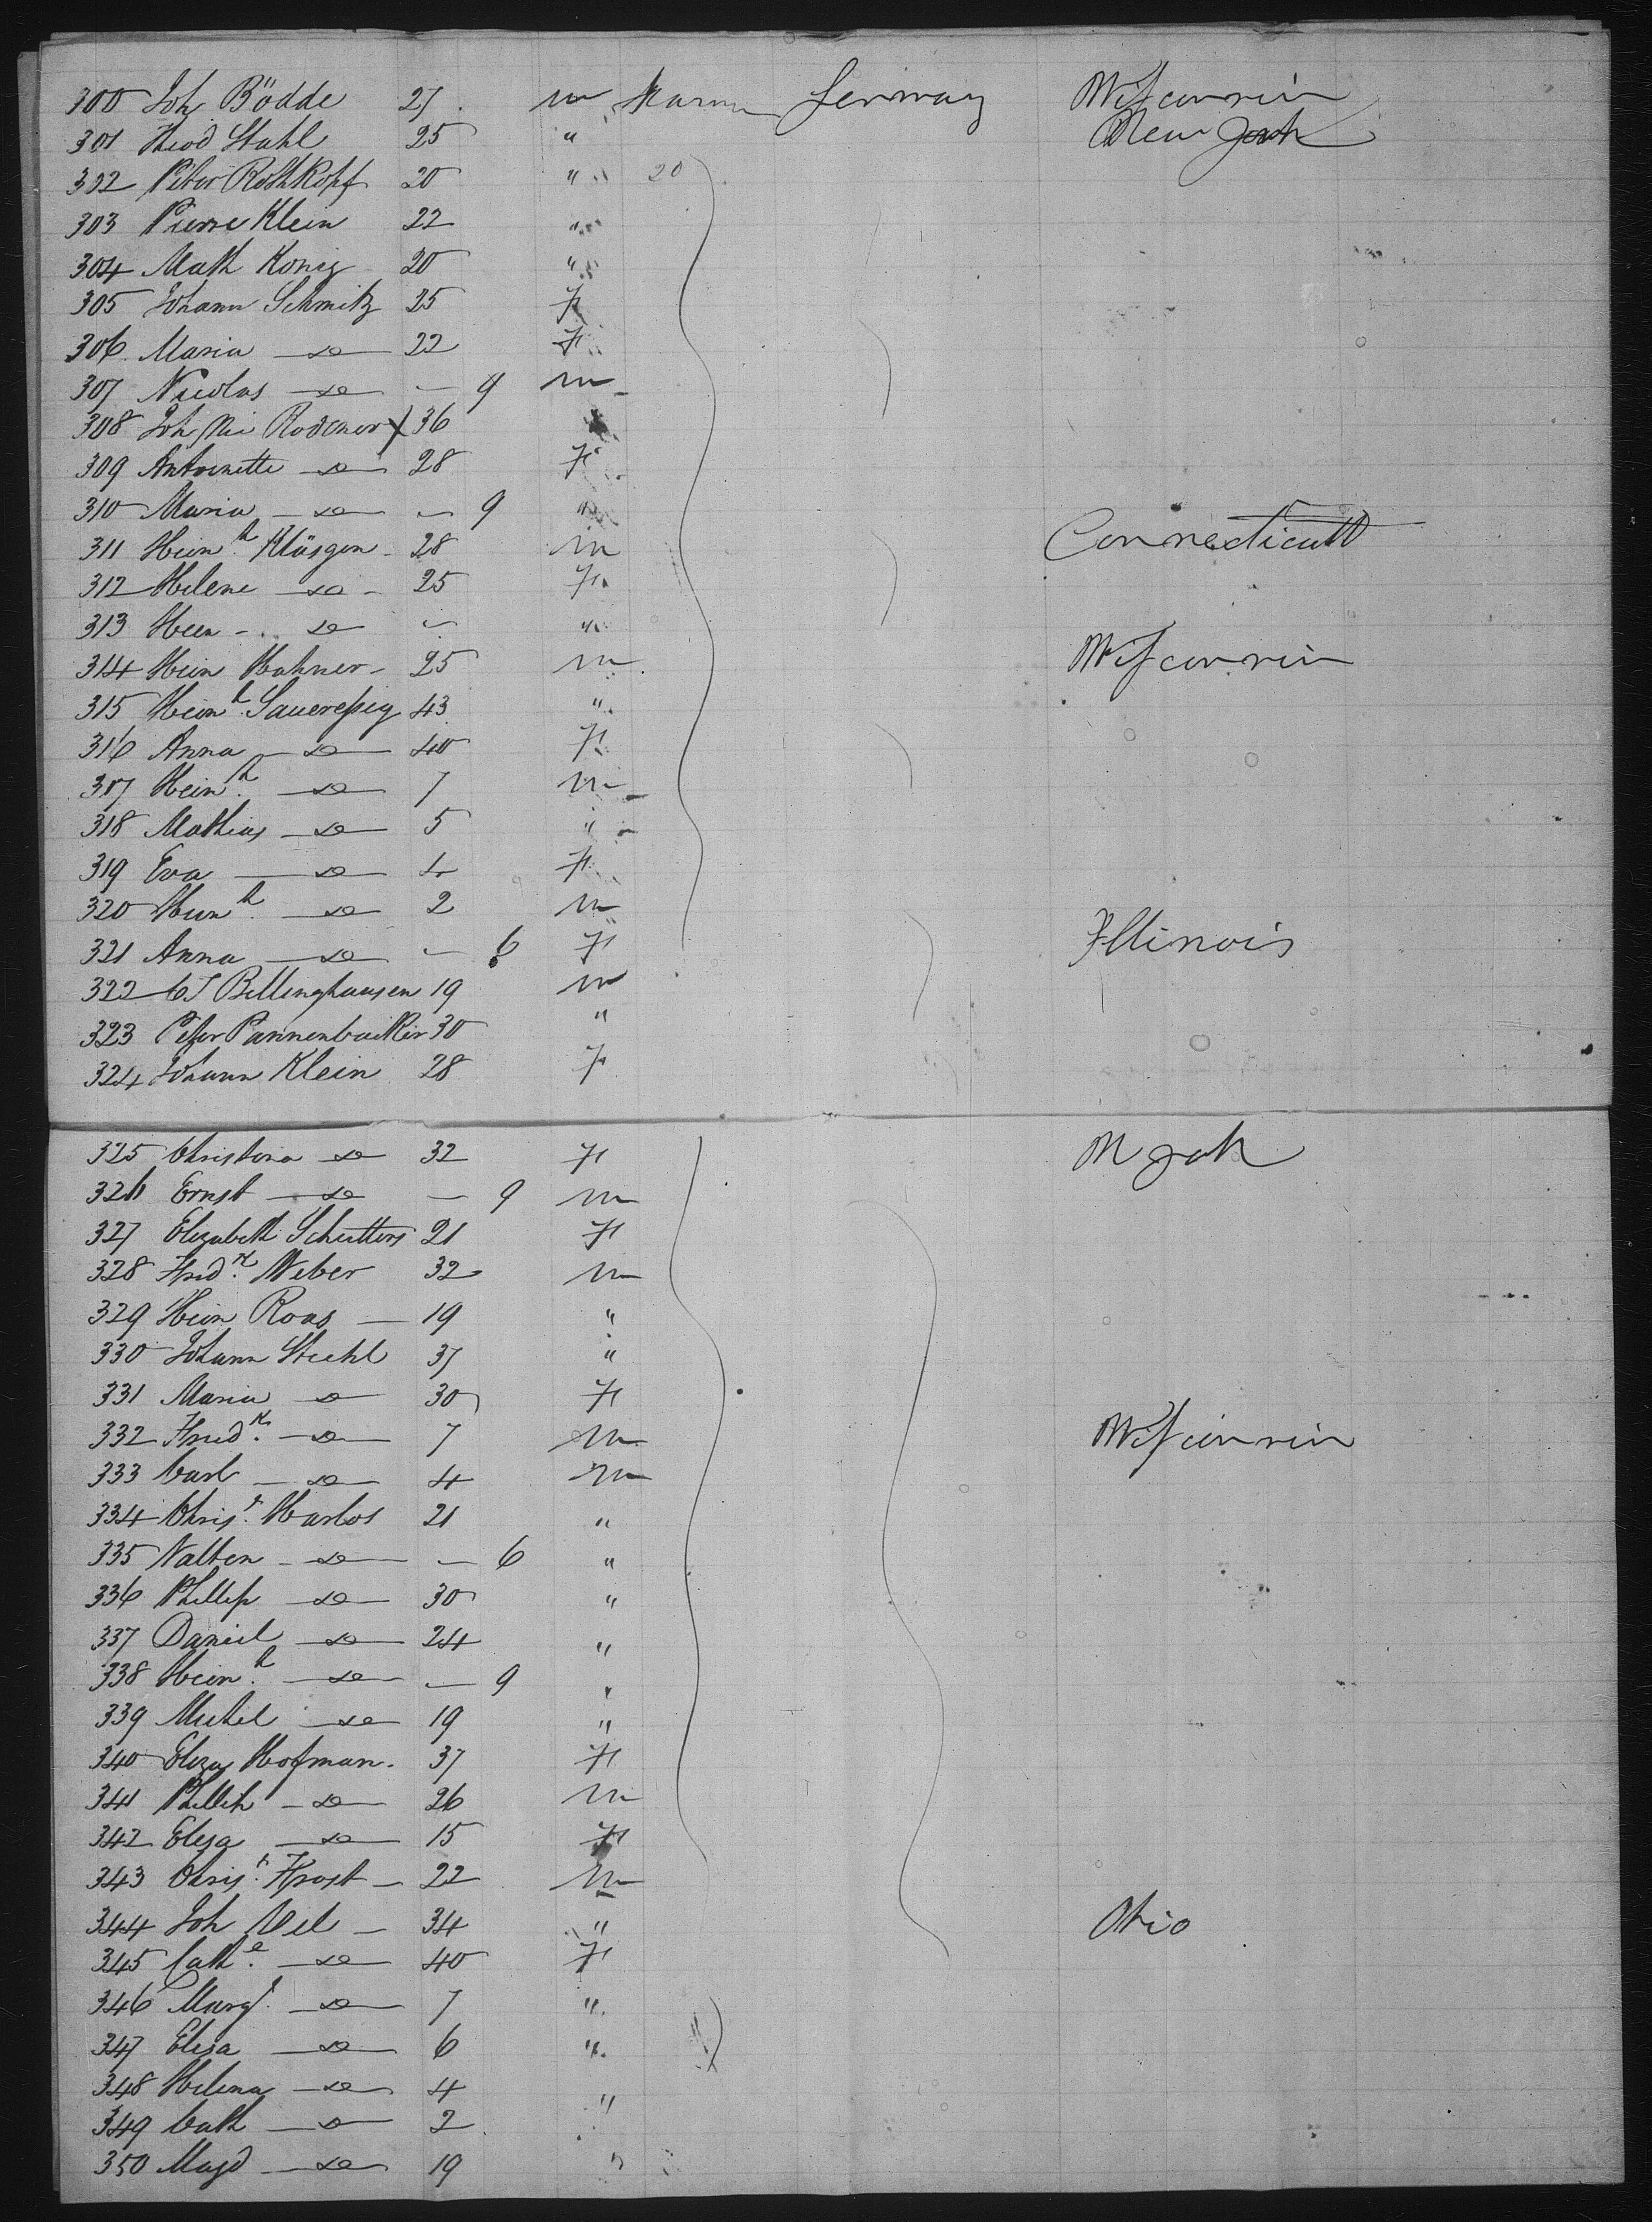 300 Joh Bödde 27 m Germany Wisconsin
301 Theod Stahl 25 " New York
302 Peter Rothkopf 20 " 20
303 Pierre Klein 22 "
304 Math Konig 20 "
305 Johann Schmitz 25 F
306 Maria do 22 F
307 Nicolas do - 9 m
308 Joh Nic Rodemer X 36
309 Antoinette do 28 F
310 Maria do - 9 "
311 Heinh Kläsgen 28 m Connecticutt
312 Helene do 25 F
313 do - "
314 Hein Hahner 25 m Wisconsin
315 Heinh Saueressig 43 "
316 Anna do 40 F
317 Heinh do 7 m
318 Mathias do 5 "
319 Eva do 4 F
320 Heinh do 2 m
321 Anna do - 6 F Illinois
322 C J Bellinghausen 19 m
323 Peter Pannenbacker 30 "
324 Johann Klein 28 F
325 Christina do 32 F N York
326 Ernst do - 9 m
327 Elizabeth Schutters 21 F
328 Fredk Weber 32 m
329 Hein Roas 19 "
330 Johann Stuhl 37 "
331 Maria do 30 F
332 Fredk do 7 m Wisconsin
333 Carl do 4 m
334 Chrisr Harlos 21 "
335 do - 6 "
336 Phillip do 30 "
337 Daniel do 24 "
338 Heinh do - 9 "
339 Michel do 19 "
340 Eliza Hofman 37 F
341 Phillip do 26 m
342 Elisa do 15 F
343 Chrisr Frost 22 m
344 Joh 34 " Ohio
345 Cathe do 40 F
346 Margt do 7 "
347 Elisa do 6 "
348 Helena do 4 "
349 Cath do 2 "
350 Magd do 19 "